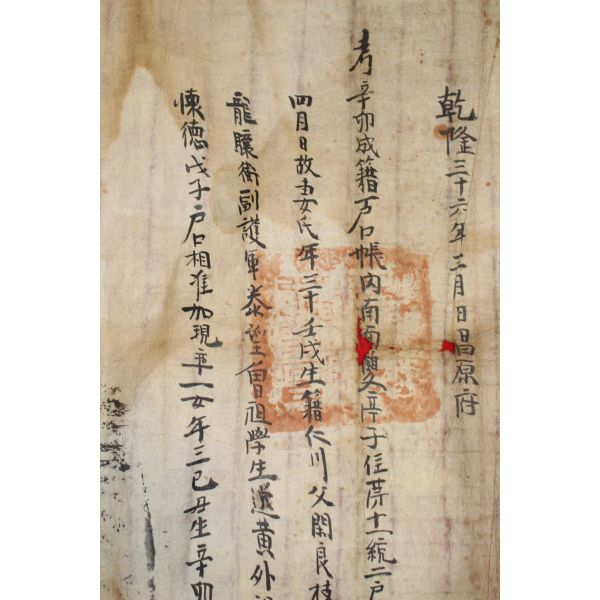 乾隆三十六年三月日昌原府
考辛卯成籍戶口帳內南面 亭子住 十一統二戶
四月日故妻 氏年三十壬戌生籍仁川父閑良枝
龍驤衛副護軍泰 曾祖學生 黃外
懷德戊子戶口相准加現率一女年三己丑生辛卯